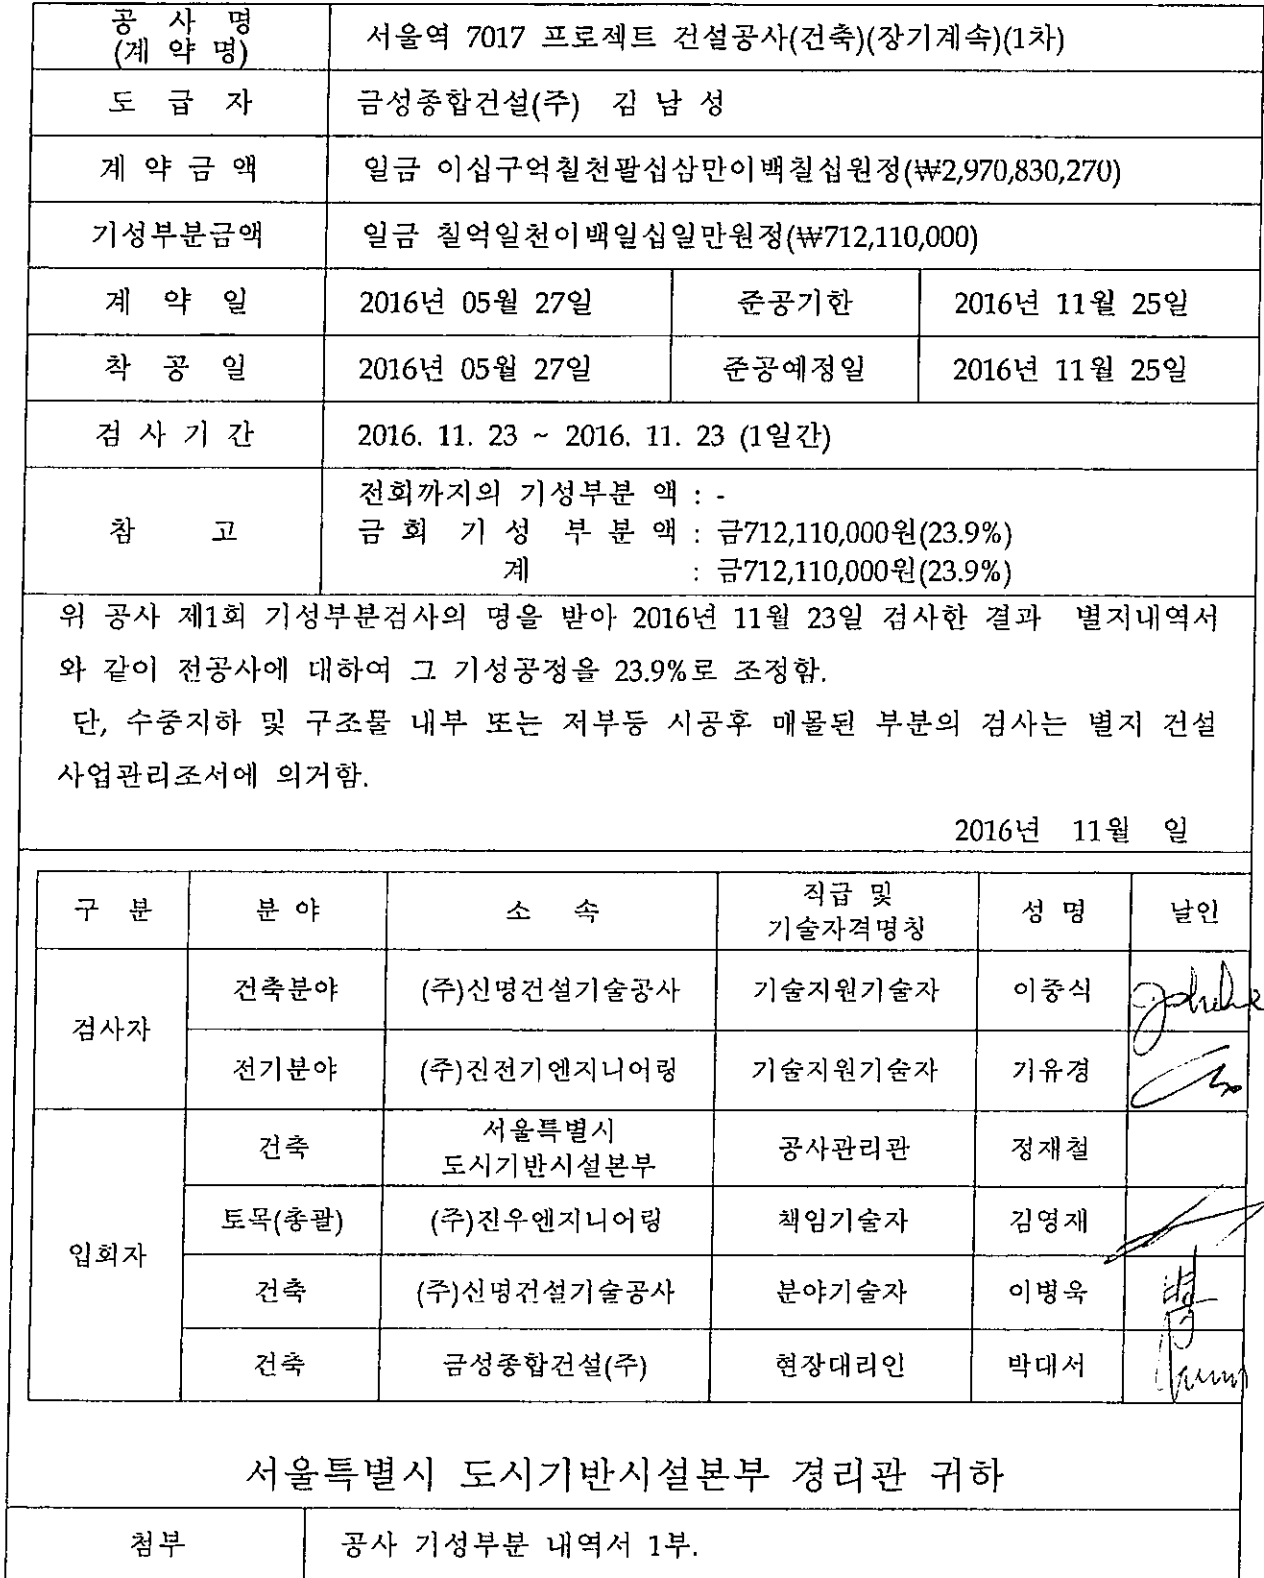 공 사 명
(계 약 명)
서울역 7017 프로젝트 건설공사(건축)(장기계속)(1차)
도 급 자
금성종합건설(주) 김 남 성
계 약 금 액
일금 이십구억칠천팔십삼만이백칠십원정(₩2,970,830,270)
기성부분금액
일금 칠억일천이백일십일만원정(₩712,110,000)
계 약 일
2016년 05월 27일
준공기한
2016년 11월 25일
착 공 일
2016년 05월 27일
준공예정일
2016년 11월 25일
검 사 기 간
2016. 11. 23 ~ 2016. 11. 23 (1일간)
참 고
전회까지의 기성부분 액 : -
금 회 기 성 부 분 액 : 금712,110,000원(23.9%)
계 : 금712,110,000원(23.9%)
위 공사 제1회 기성부분검사의 명을 받아 2016년 11월 23일 검사한 결과 별지내역서
와 같이 전공사에 대하여 그 기성공정을 23.9%로 조정함.
단, 수중지하 및 구조물 내부 또는 저부등 시공후 매몰된 부분의 검사는 별지 건설
사업관리조서에 의거함.
2016년 11월 일
구 분
분 야
소 속
직급 및
기술자격명칭
성 명
날인
검사자
건축분야
(주)신명건설기술공사
기술지원기술자
이중식
전기분야
(주)진전기엔지니어링
기술지원기술자
기유경
입회자
건축
서울특별시
도시기반시설본부
공사관리관
정재철
토목(총괄)
(주)진우엔지니어링
책임기술자
김영재
건축
(주)신명건설기술공사
분야기술자
이병욱
건축
금성종합건설(주)
현장대리인
박대서
서울특별시 도시기반시설본부 경리관 귀하
첨부
공사 기성부분 내역서 1부.